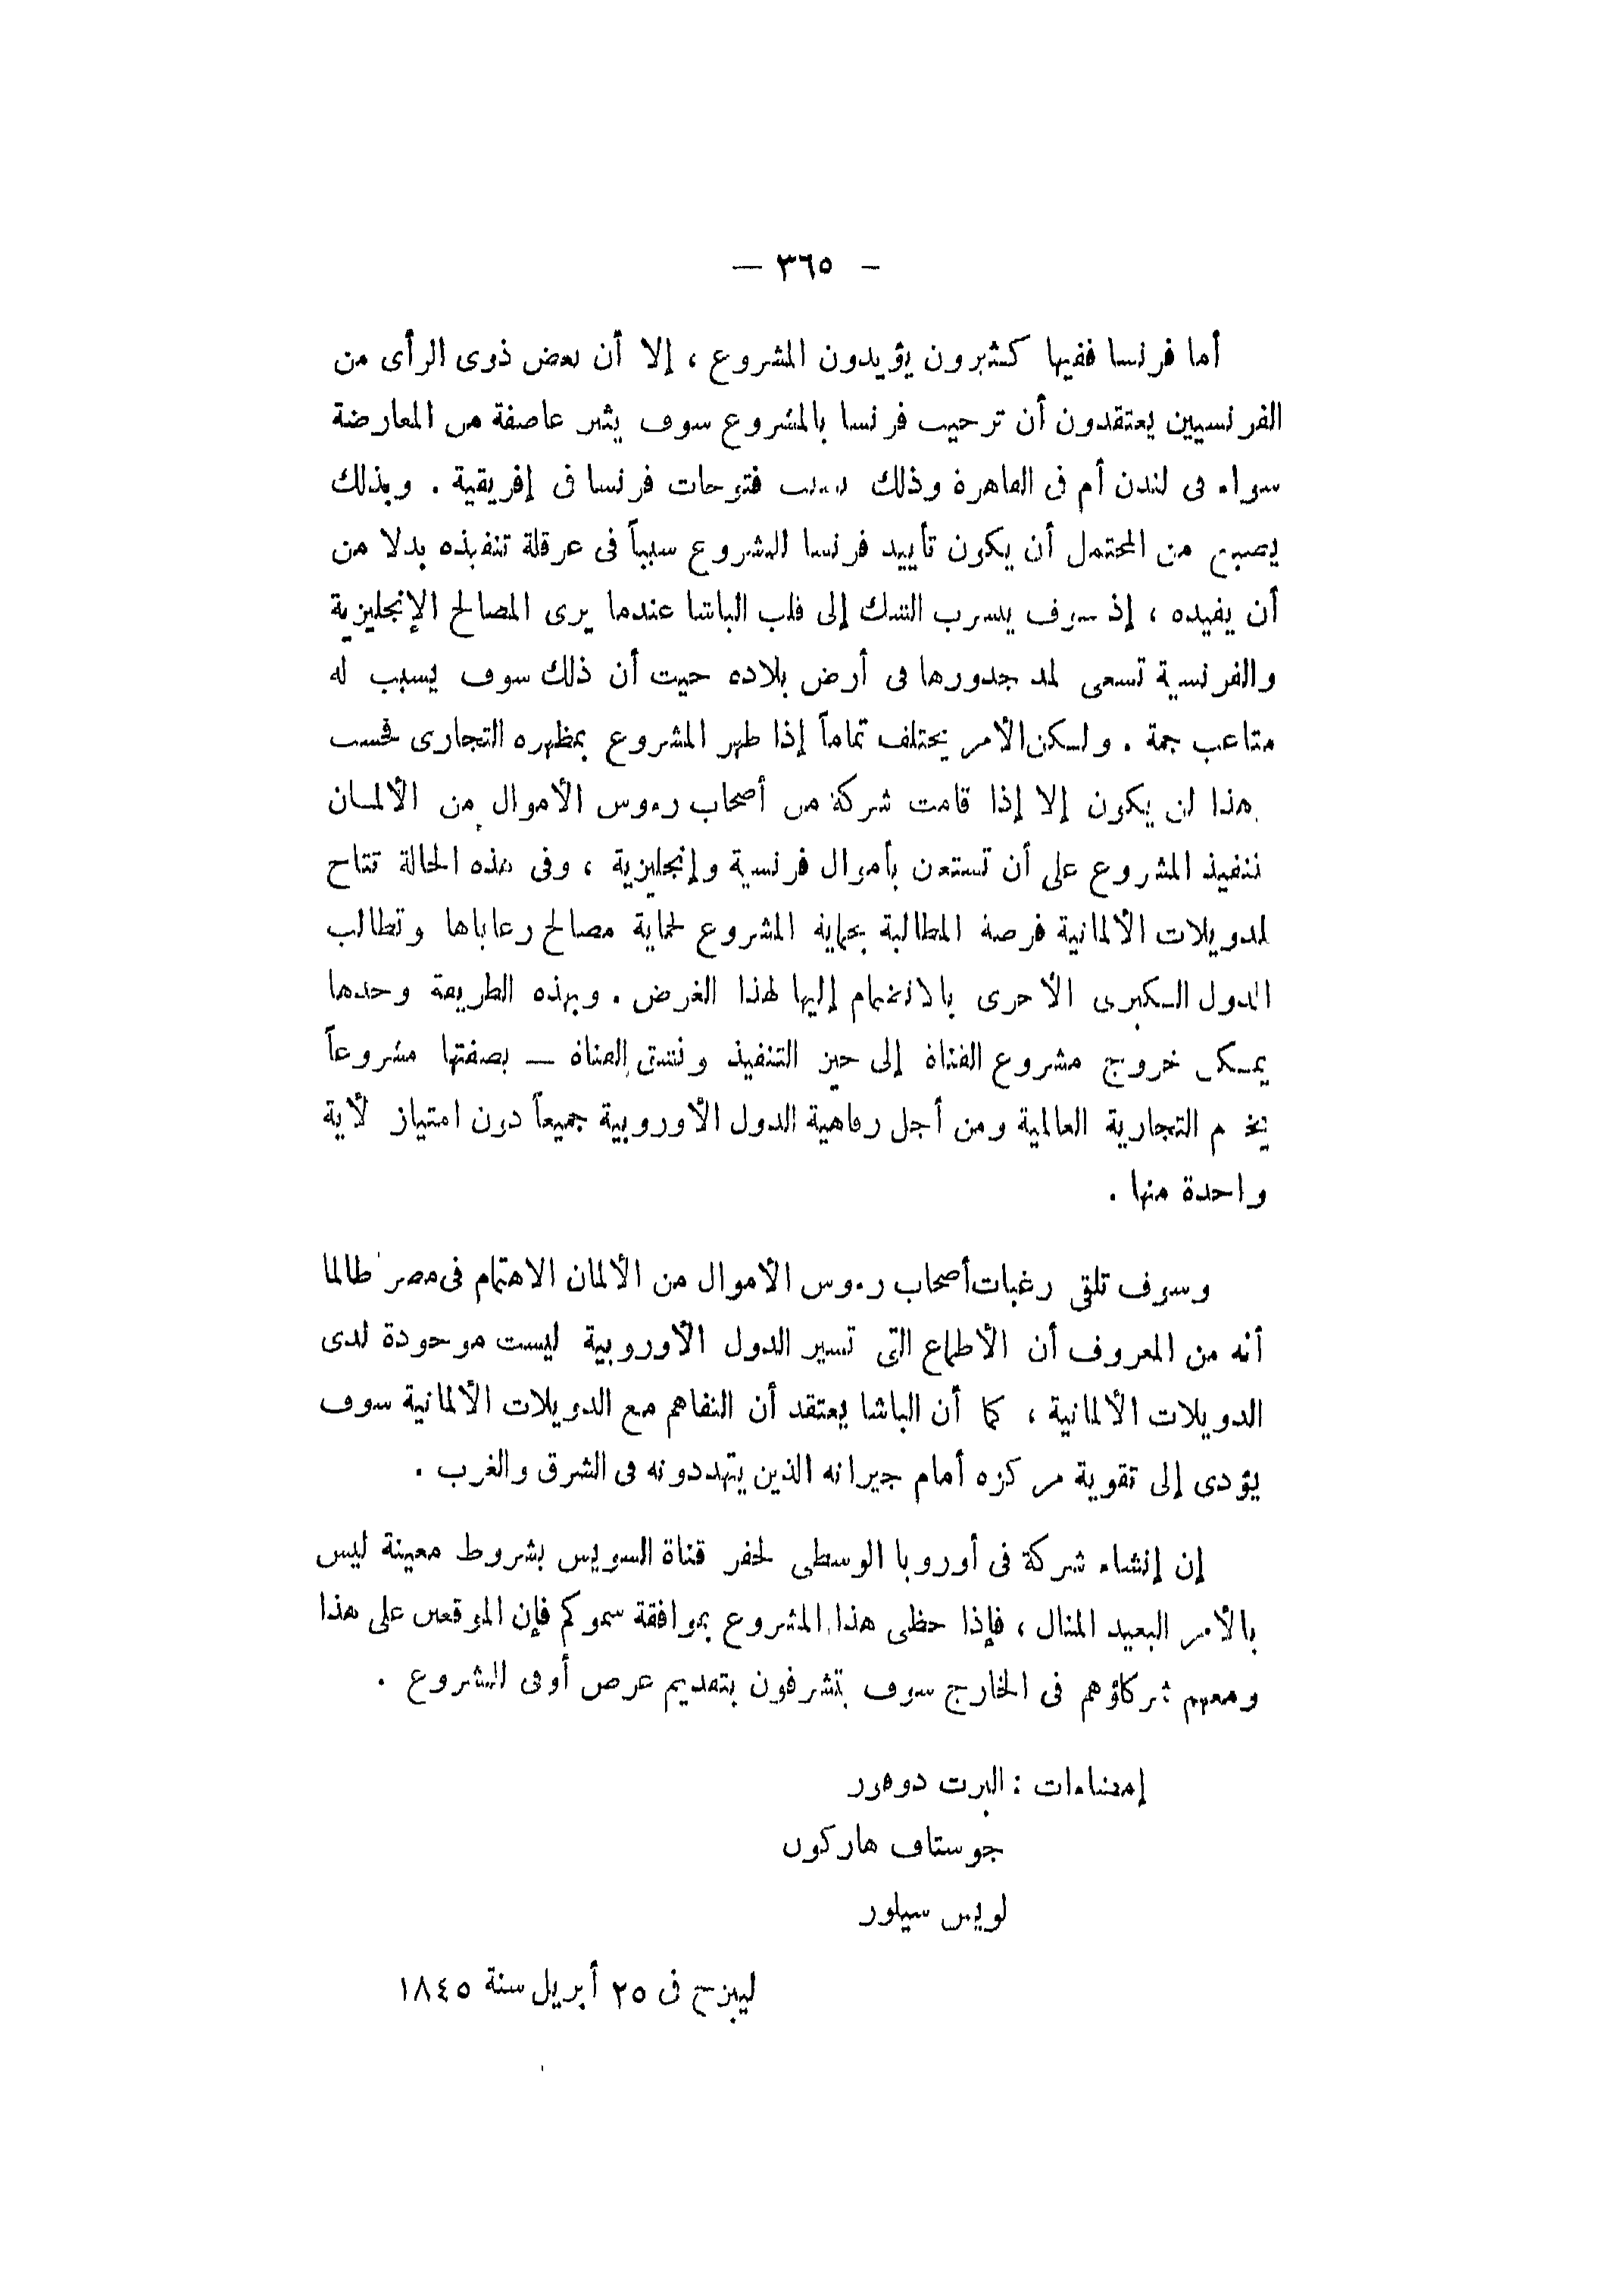 — ٣٦٥ —
أما فرنسا ففيها كثيرون يؤيدون المشروع ، إلا أن بعض ذوى الرأى من
الفرنسيين يعتقدون أن ترحيب فرنسا بالمشروع سوف يثير عاصفة من المعارضة
سواء فى لندن أم فى القاهرة وذلك بسبب فتوحات فرنسا فى إفريقية . وبذلك
يصبح من المحتمل أن يكون تأييد فرنسا للمشروع سبباً فى عرقلة تنفيذه بدلا من
أن يفيده ، إذ سوف يتسرب الشك إلى قلب الباشا عندما يرى المصالح الإنجليزية
والفرنسية تسعى لمد جذورها فى أرض بلاده حيث أن ذلك سوف يسبب له
متاعب جمة . ولكن الأمر يختلف تماماً إذا ظهر المشروع بمظهره التجارى فحسب
هذا لن يكون إلا إذا قامت شركة من أصحاب رءوس الأموال من الألمان
تنفيذ المشروع على أن تستعين بأموال فرنسية وإنجليزية ، وفى هذه الحالة تتاح
لدويلات الألمانية فرصة المطالبة بحماية المشروع لحماية مصالح رعاياها وتطالب
الدول الكبرى الأخرى بالانضمام إليها لهذا الغرض . وبهذه الطريقة وحدها
يمكن خروج مشروع القناة إلى حيز التنفيذ وتشق القناة — بصفتها مشروعاً
يخدم التجارية العالمية ومن أجل رفاهية الدول الأوروبية جميعاً دون امتياز لأية
واحدة منها .
وسوف تلقى رغبات أصحاب رءوس الأموال من الألمان الاهتمام فى مصر طالما
أنه من المعروف أن الأطماع التى تسير الدول الأوروبية ليست موجودة لدى
الدويلات الألمانية ، كما أن الباشا يعتقد أن التفاهم مع الدويلات الألمانية سوف
يؤدى إلى تقوية مركزه أمام جيرانه الذين يتهددونه فى الشرق والغرب .
إن إنشاء شركة فى أوروبا الوسطى لحفر قناة السويس بشروط معينة ليس
بالأمر البعيد المنال ، فإذا حظى هذا المشروع بموافقة سموكم فإن الموقعين على هذا
ومعهم شركاؤهم فى الخارج سوف يتشرفون بتقديم عرض أوفى للمشروع .
إمضاءات : البرت دوفور
جوستاف هاركون
لويس سيلور
ليبزج فى ٢٥ أبريل سنة ١٨٤٥